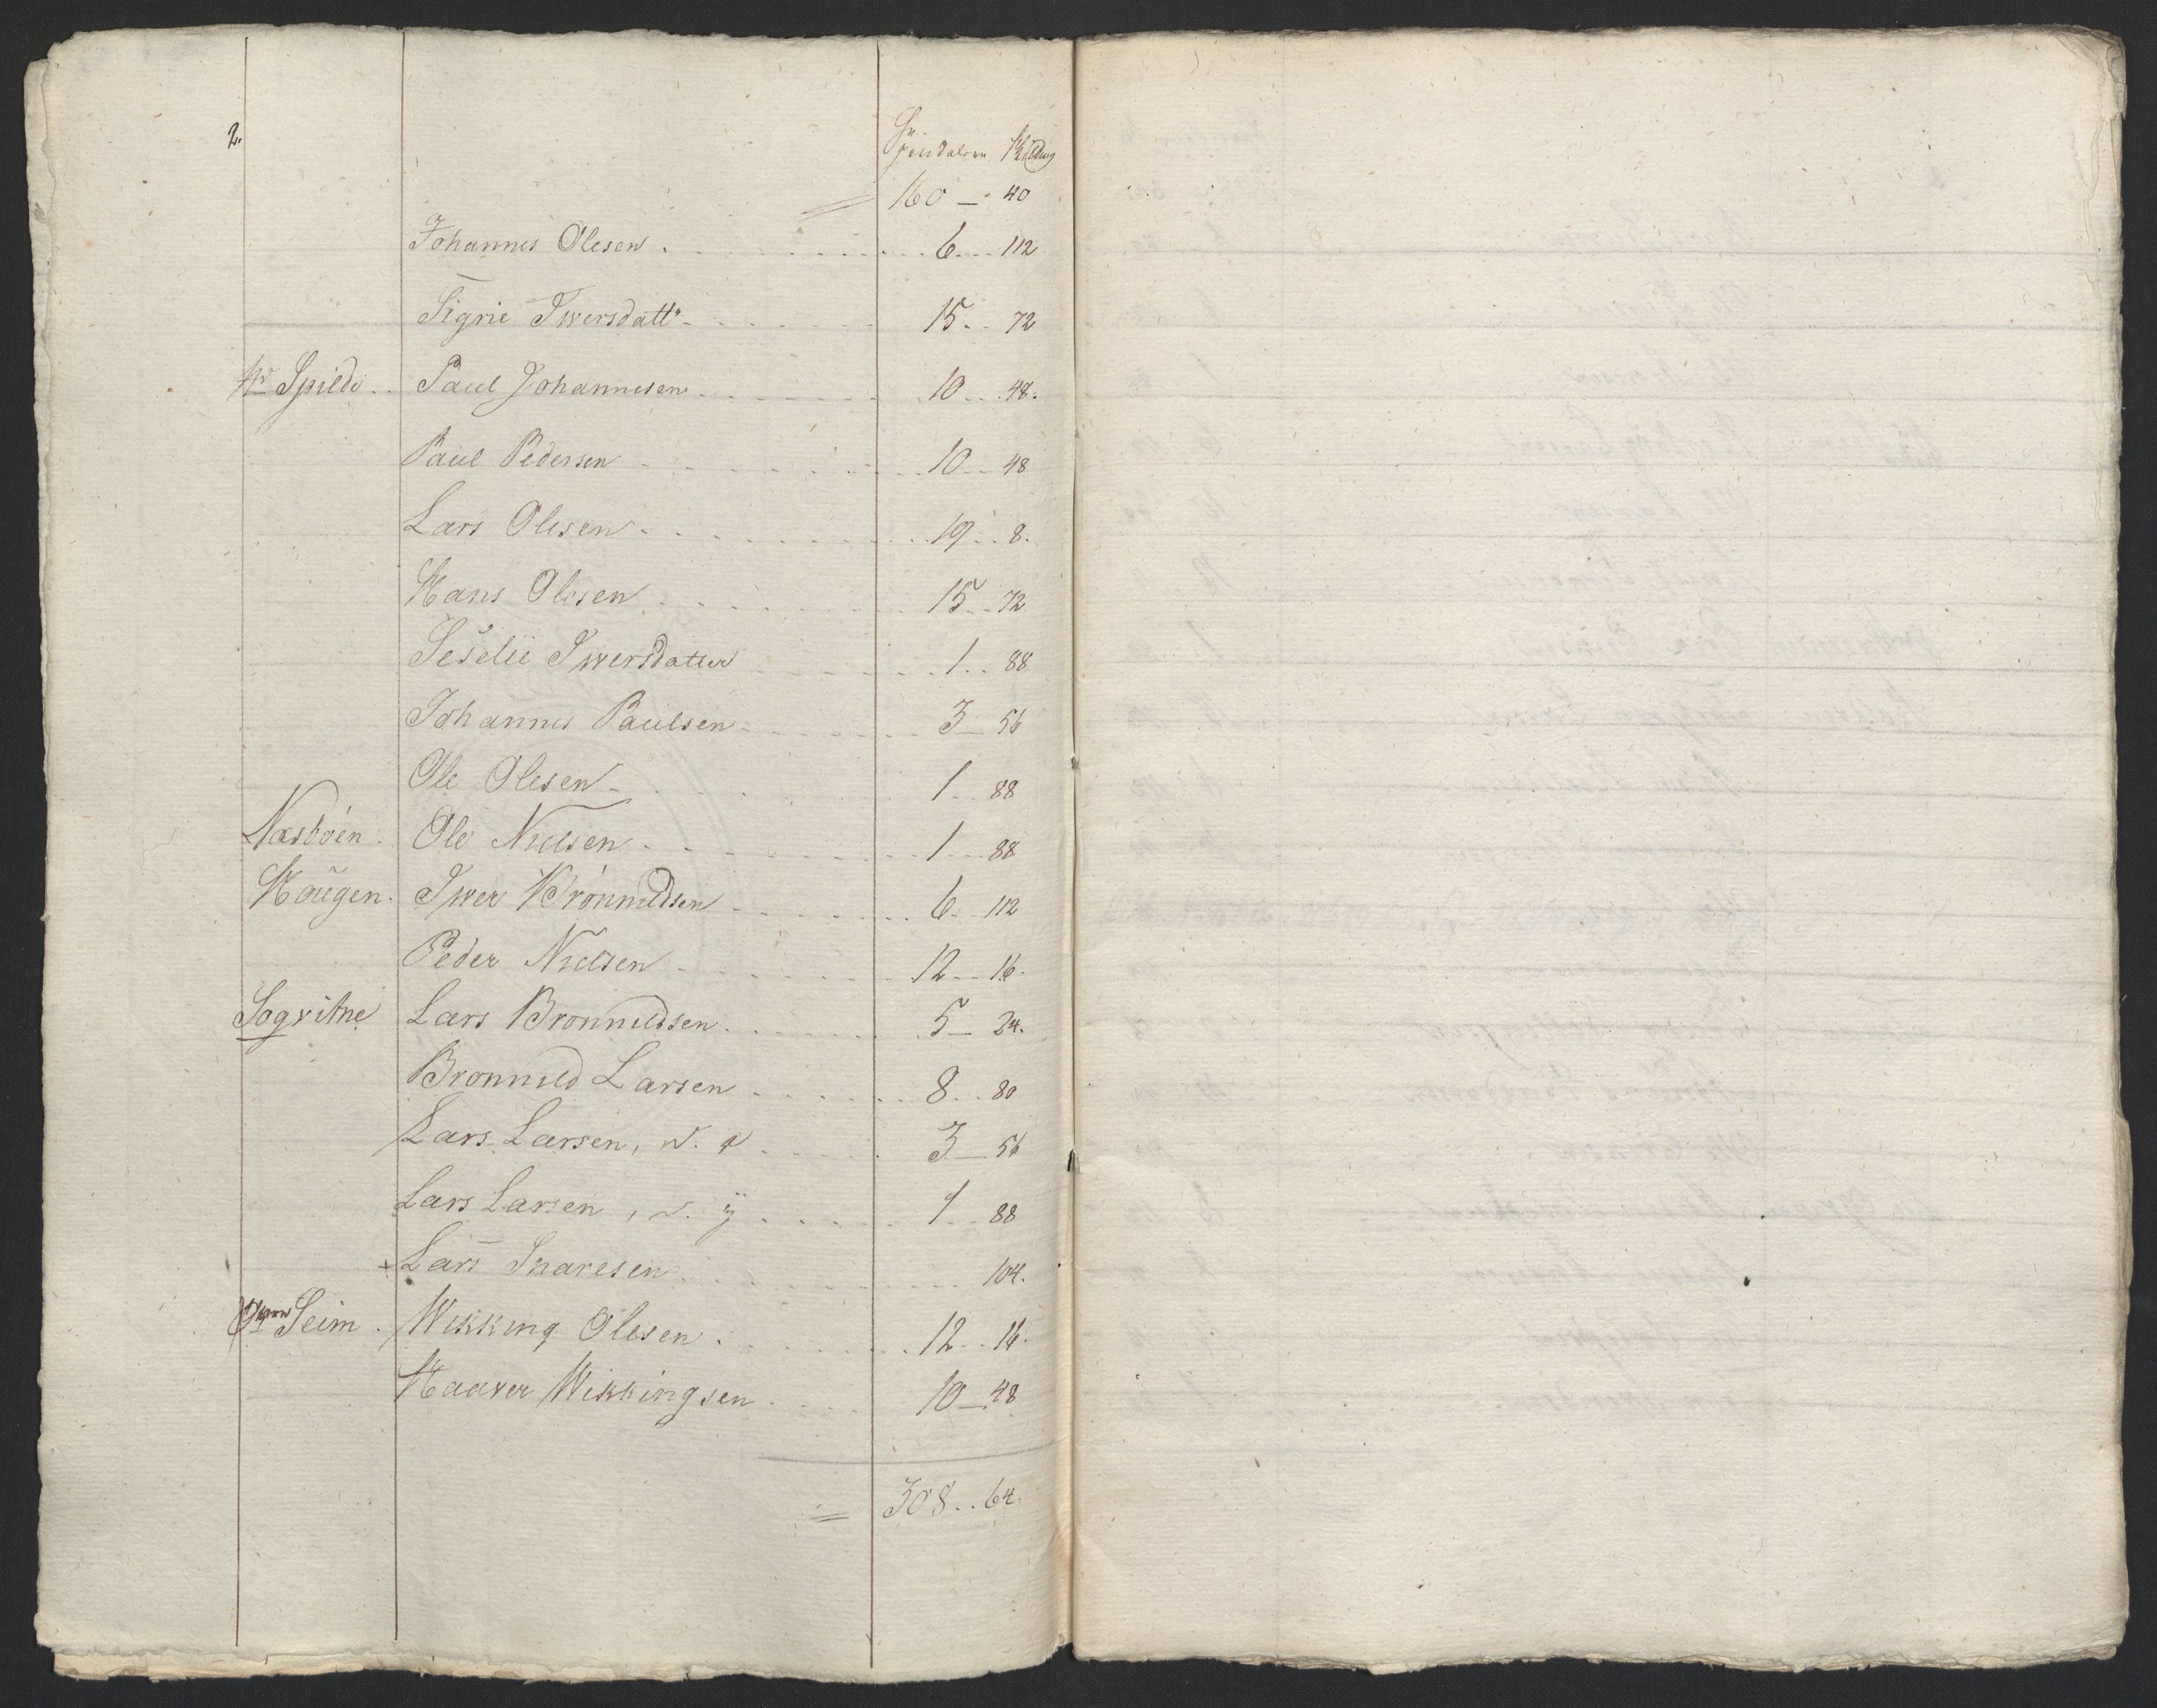 2.
Speciedaler Skilling
160 — 40
Johannes Olesen . . . 6 . . . 112
Sigrie Iwersdattr . . . 15 . . 72
Spilde . . Paul Johannesen . . . 10 . . . 48.
Paul Pedersen . . . 10 . . . 48
Lars Olesen . . . 19 . . 8.
Hans Olesen . . . 15 . . 72
Seselie Iwersdatter . . . 1 . . 88
Johannes Paulsen . . . 3 — 56
Ole Olesen . . . 1 . . 88
Næsbøen . Ole Nielsen . . . 1 . . . 88
Hougen . Iwer Brønnildsen . . . 6 . . 112
Peder Nielsen . . . 12 . . . 16.
Sogvitne Lars Bronnildsen . . . 5 — 24.
Bronnild Larsen . . . 8 . . 80
Lars Larsen, d. æ . . . 3 — 56
Lars Larsen, d. ÿ . . . 1 . . . 88
+ Lars Snaresen . . . 104.
Seim . Wikking Olesen . . . 12 . . 16.
Haaver Wikkingsen . . . 10 — 48
= 308 . . 64.